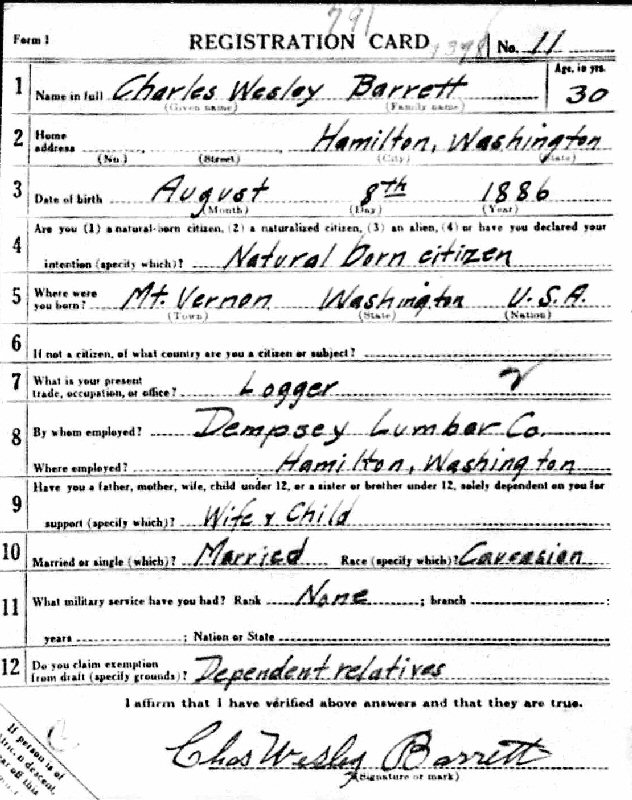 791
Form 1 REGISTRATION CARD 1398 No. 11
1 Name in full Charles Wesley Barrett Age, in yrs. 30
(Given name) (Family name)
2 Home address Hamilton, Washington
(No.) (Street) (City) (State)
3 Date of birth August 8th 1886
(Month) (Day) (Year)
4 Are you (1) a natural-born citizen, (2) a naturalized citizen, (3) an alien, (4) or have you declared your
intention (specify which)? Natural born citizen
5 Where were you born? Mt. Vernon Washington U.S.A.
(Town) (State) (Nation)
6 If not a citizen, of what country are you a citizen or subject?
7 What is your present trade, occupation, or office? Logger
8 By whom employed? Dempsey Lumber Co.
Where employed? Hamilton, Washington
9 Have you a father, mother, wife, child under 12, or a sister or brother under 12, solely dependent on you for
support (specify which)? Wife & Child
10 Married or single (which)? Married Race (specify which)? Caucasion
11 What military service have you had? Rank None ; branch ;
years ; Nation or State
12 Do you claim exemption from draft (specify grounds)? Dependent relatives
I affirm that I have verified above answers and that they are true.
Chas Wesley Barrett
(Signature or mark)
If person is of
descent,
off this